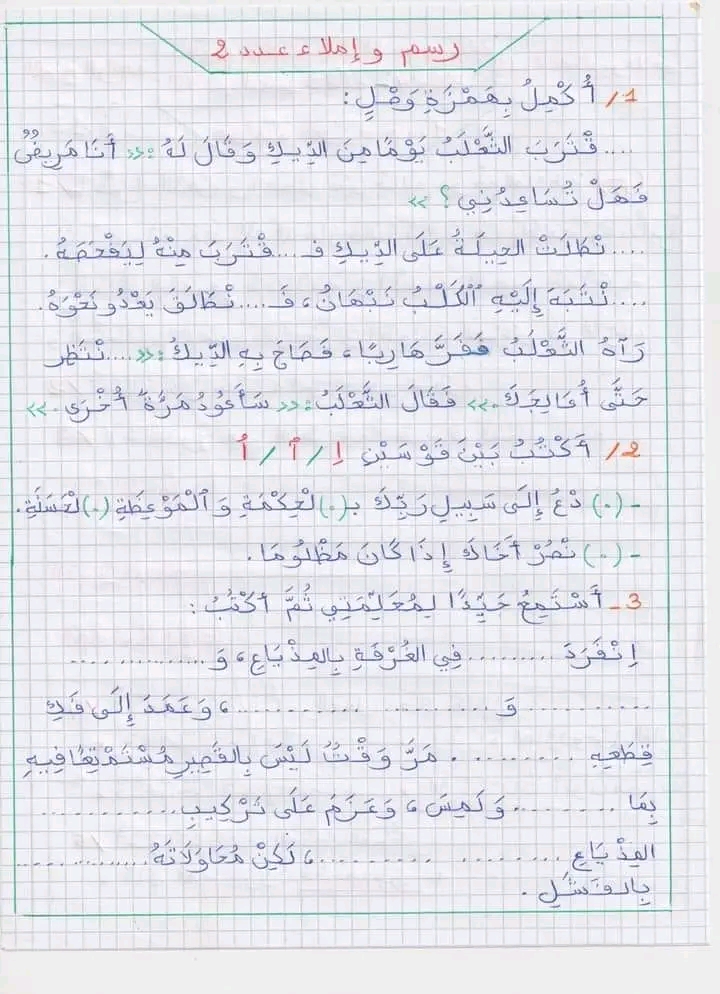 رسم و إملاء عدد 2
1/ أُكْمِلُ بِهَمْزَةِ وَصْلٍ :
.... قْتَرَبَ الثَّعْلَبُ يَوْمًا مِنَ الدِّيكِ وَقَالَ لَهُ :<< أَنَا مَرِيضٌ
فَهَلْ تُسَاعِدُنِي ؟ >>
.... نْطَلَتْ الحِيلَةُ عَلَى الدِّيكِ فَ .... قْتَرَبَ مِنْهُ لِيَفْحَصَهُ .
.... نْتَبَهَ إِلَيْهِ ٱلْكَلْبُ نَبْهَانُ، فَ .... نْطَلَقَ يَعْدُو نَحْوَهُ .
رَآهُ الثَّعْلَبُ فَفَرَّ هَارِبًا، فَصَاحَ بِهِ الدِّيكُ :<< .... نْتَظِر
حَتَّى أُعَالِجَكَ . >> فَقَالَ الثَّعْلَبُ :<< سَأَعُودُ مَرَّةً أُخْرَى . >>
2/ أَكْتُبُ بَيْنَ قَوْسَيْنِ اِ / اَ / اُ
- (.) دْعُ إِلَى سَبِيلِ رَبِّكَ بِـ(.) لْحِكْمَةِ وَ ٱلْمَوْعِظَةِ (.) لْحَسَنَةِ .
- (.) نْصُرْ أَخَاكَ إِذَا كَانَ مَظْلُومَا .
3- أَسْتَمِعُ جَيِّدًا لِمُعَلِّمَتِي ثُمَّ أَكْتُبُ :
اِنْفَرَدَ ......... فِي الغُرْفَةِ بِالمِذْيَاعِ، وَ ..............
............ وَ ........ ............، وَعَمَدَ إِلَى فَكِّ
قِطَعِهِ ......... . مَرَّ وَقْتٌ لَيْسَ بِالقَصِيرِ مُسْتَمْتِعًا فِيهِ
بِمَا ......... وَلَمِسَ، وَعَزَمَ عَلَى تَرْكِيبِ ............
المِذْيَاعِ ......... ............، لَكِنْ مُحَاوَلَاتَهُ ............
بِالفَشَلِ .